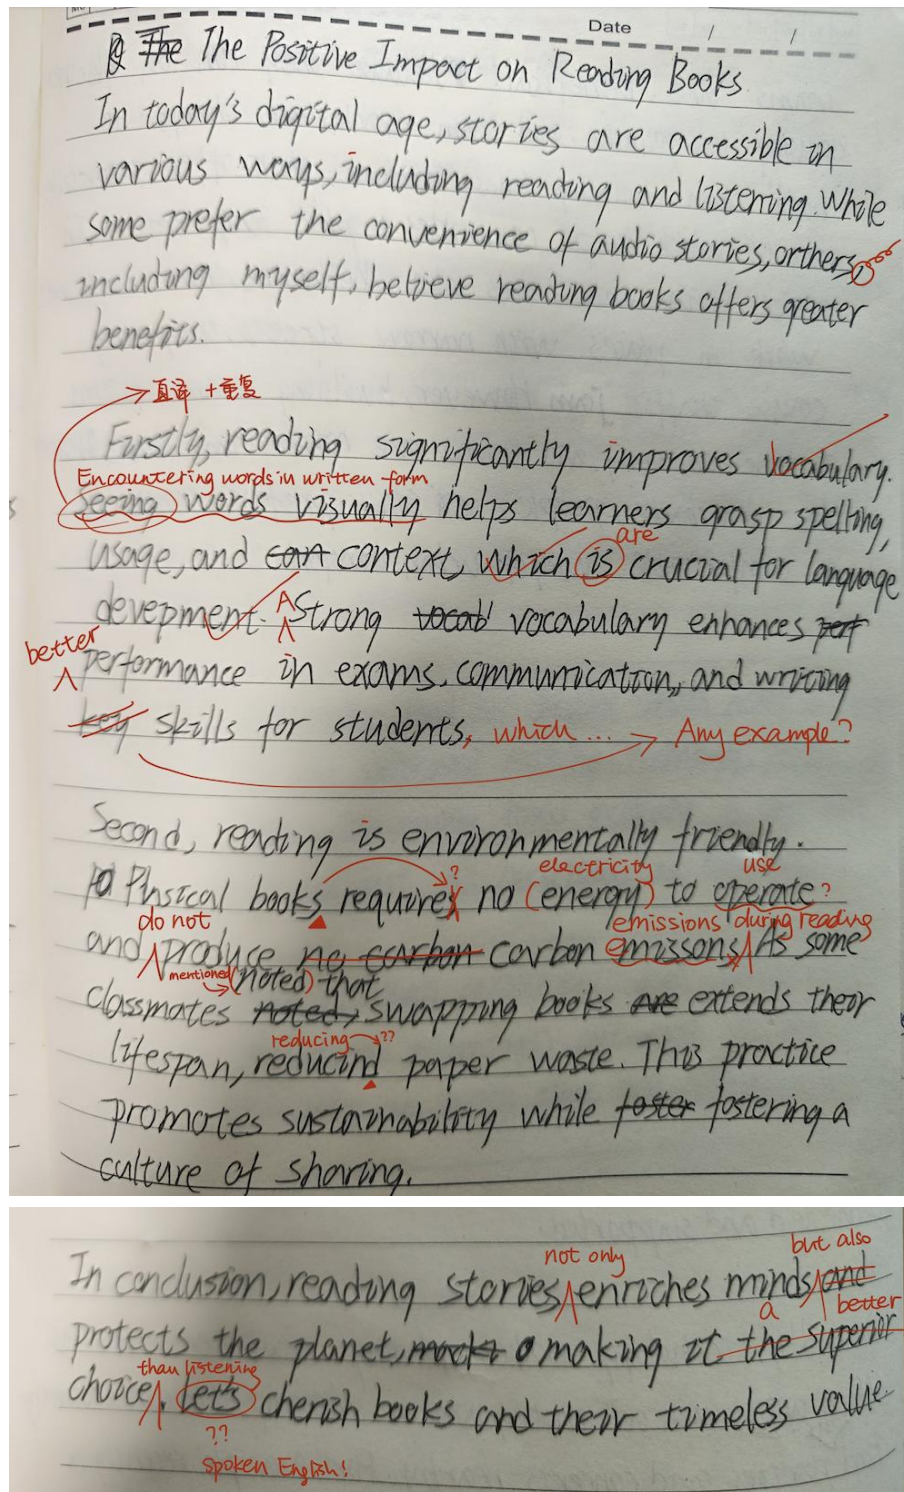 Date / /
The The Positive Impact on Reading Books
In today's digital age, stories are accessible in
various ways, including reading and listening. While
some prefer the convenience of audio stories, orthers,
including myself, believe reading books offers greater
benefits.
直译 +重复
Firstly, reading significantly improves vocabulary.
Encountering words in written form
Seeing words visually helps learners grasp spelling,
are
usage, and can context, which is crucial for language
A
devepment. Strong vocabl vocabulary enhances perf
better
performance in exams, communication, and writing
key skills for students, which ... → Any example?
Second, reading is environmentally friendly.
? electricity use
Phsical books requires no (energy) to operate?
do not emissions during reading
and produce no carbon carbon emissons. As some
mentioned (noted) that
classmates noted, swapping books are extends their
reducing ??
lifespan, reducind paper waste. This practice
promotes sustainability while foster fostering a
culture of sharing.
not only but also
In conclusion, reading stories enriches minds and
a better
protects the planet, making it the superior
than listening
choice. Let's cherish books and their timeless value.
??
spoken English!